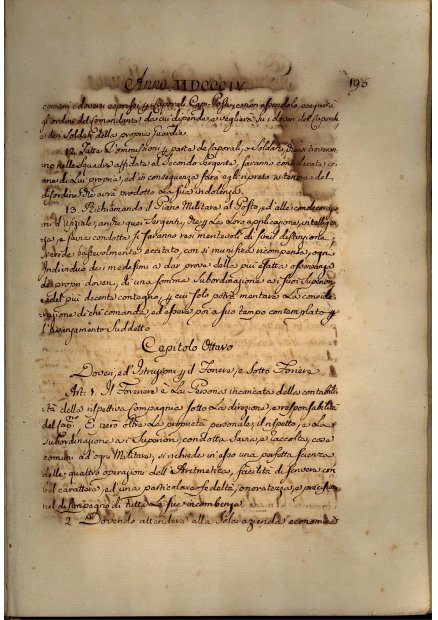 Anno MDCCCIV. 195
comuni i doveri espressi p i Caporali Capi Posti; e non essendolo, eseguirà
gli ordini del Comandante da cui dipende, e veglierà su i doveri del Caporale,
e dei Soldati della propria Guardia.
12. Tutte l'ommissioni p parte de Caporali, e Soldati, che si troveranno
nelle Squadre affidate al Secondo Sergente, saranno considerate co
me di Lui proprie, ed in conseguenza sarà egli ripreso a tenore del
disordine, che avrà prodotto la sua indolenza.
13. Richiamando il Piano Militare al Posto, ed alle
d'Uffiziale, anche quei Sergenti, che p la Loro applicazione, intelligen
za, e savia condotta si saranno resi meritevoli di simil distinzione,
verrà bastevolmente eccitato, con sì munifica ricompensa, ogni
Individuo dei medesimi a dar prove della più esatta osservanza
de propri doveri, di una somma Subordinazione a' suoi Superiori
e del più decente contegno, p cui solo potrà meritare la conside
razione di chi comanda, ed essere poi a suo tempo contemplato p
l'avanzamento Suddetto
Capitolo Ottavo
Doveri, ed Istruzioni p il Foriere, e Sotto Foriere.
Art: 1. Il Foriere è la Persona incaricata della contabili
tà della rispettiva Compagnia sotto la direzione, e responsabilità
del Cap.no E però oltre la proprietà personale, il rispetto, e la
Subordinazione a' Superiori, condotta savia, e raccolta, cose
comuni ad ogni Militare, si richiede in esso una perfetta scienza
delle quattro operazioni dell'Aritmetica, facilità di scrivere con
bel carattere, ed una particolare fedeltà, onoratezza, e precisione
nel disimpegno di tutte le sue incombenze.
2. Dovendo attendere alla Sola azienda economica